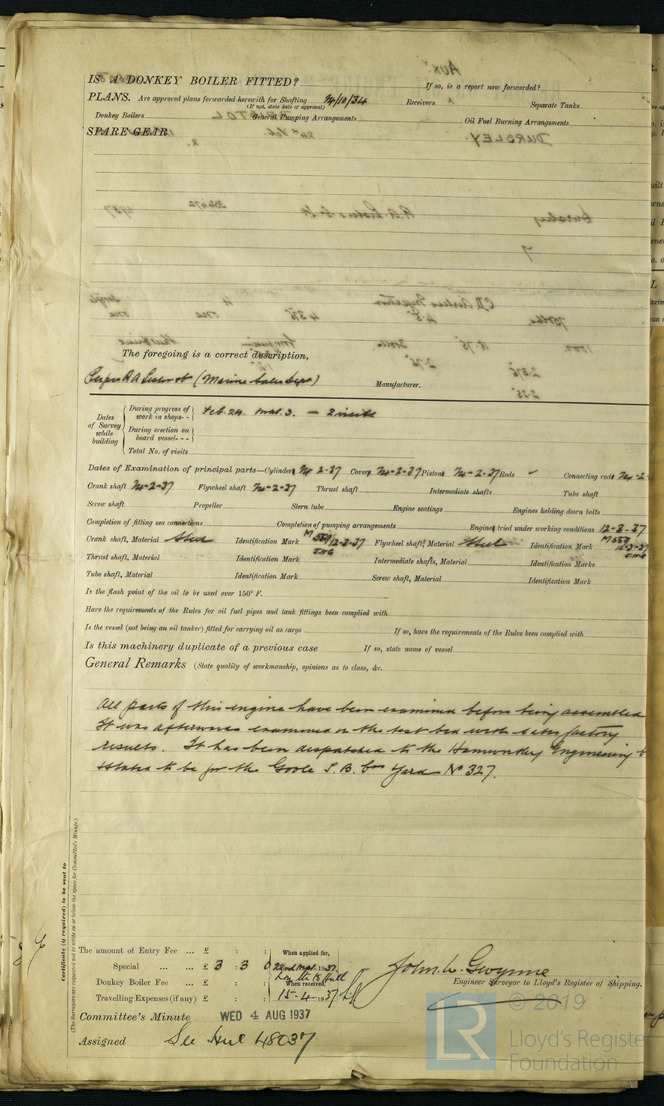 IS A DONKEY BOILER FITTED? If so, is a report now forwarded?
PLANS. Are approved plans forwarded herewith for Shafting 24/10/34 Receivers Separate Tanks
(If not, state date of approval)
Donkey Boilers General Pumping Arrangements Oil Fuel Burning Arrangements
SPARE GEAR
The foregoing is a correct description,
R A Lister & Co (Marine Sales Dept) Manufacturer.
Dates of Survey while building
During progress of work in shops - - Feb. 24. Mar. 3. — 2 visits
During erection on board vessel - - -
Total No. of visits
Dates of Examination of principal parts—Cylinders 24-2-37 Covers 24-2-37 Pistons 24-2-37 Rods ✓ Connecting rods 24-2
Crank shaft 24-2-37 Flywheel shaft 24-2-37 Thrust shaft Intermediate shafts Tube shaft
Screw shaft Propeller Stern tube Engine seatings Engines holding down bolts
Completion of fitting sea connections Completion of pumping arrangements Engines tried under working conditions 12-3-37
Crank shaft, Material Steel Identification Mark 12-3-37 Flywheel shaft, Material Steel Identification Mark 12-3-37
Thrust shaft, Material Identification Mark Intermediate shafts, Material Identification Marks
Tube shaft, Material Identification Mark Screw shaft, Material Identification Mark
Is the flash point of the oil to be used over 150° F.
Have the requirements of the Rules for oil fuel pipes and tank fittings been complied with
Is the vessel (not being an oil tanker) fitted for carrying oil as cargo If so, have the requirements of the Rules been complied with
Is this machinery duplicate of a previous case If so, state name of vessel
General Remarks (State quality of workmanship, opinions as to class, &c.
All parts of this engine have been examined before being assembled
It was afterwards examined on the test bed with satisfactory
results. It has been despatched to the Humber Engineering
stated to be for the Goole S. B. Cos Yard No 327.
Certificate (if required) to be sent to
(The Surveyors are requested not to write on or below the space for Committee's Minute.)
The amount of Entry Fee ... £ : : When applied for,
Special ... ... £ 3 : 3 : 0 22nd Mar. 1937
Donkey Boiler Fee ... £ : : When received,
Travelling Expenses (if any) £ : : 15-4-1937
John W. Gwynne
Engineer Surveyor to Lloyd's Register of Shipping.
Committee's Minute WED 4 AUG 1937
Assigned See Hul 48037
© 2019
Lloyd's Register
Foundation
LR